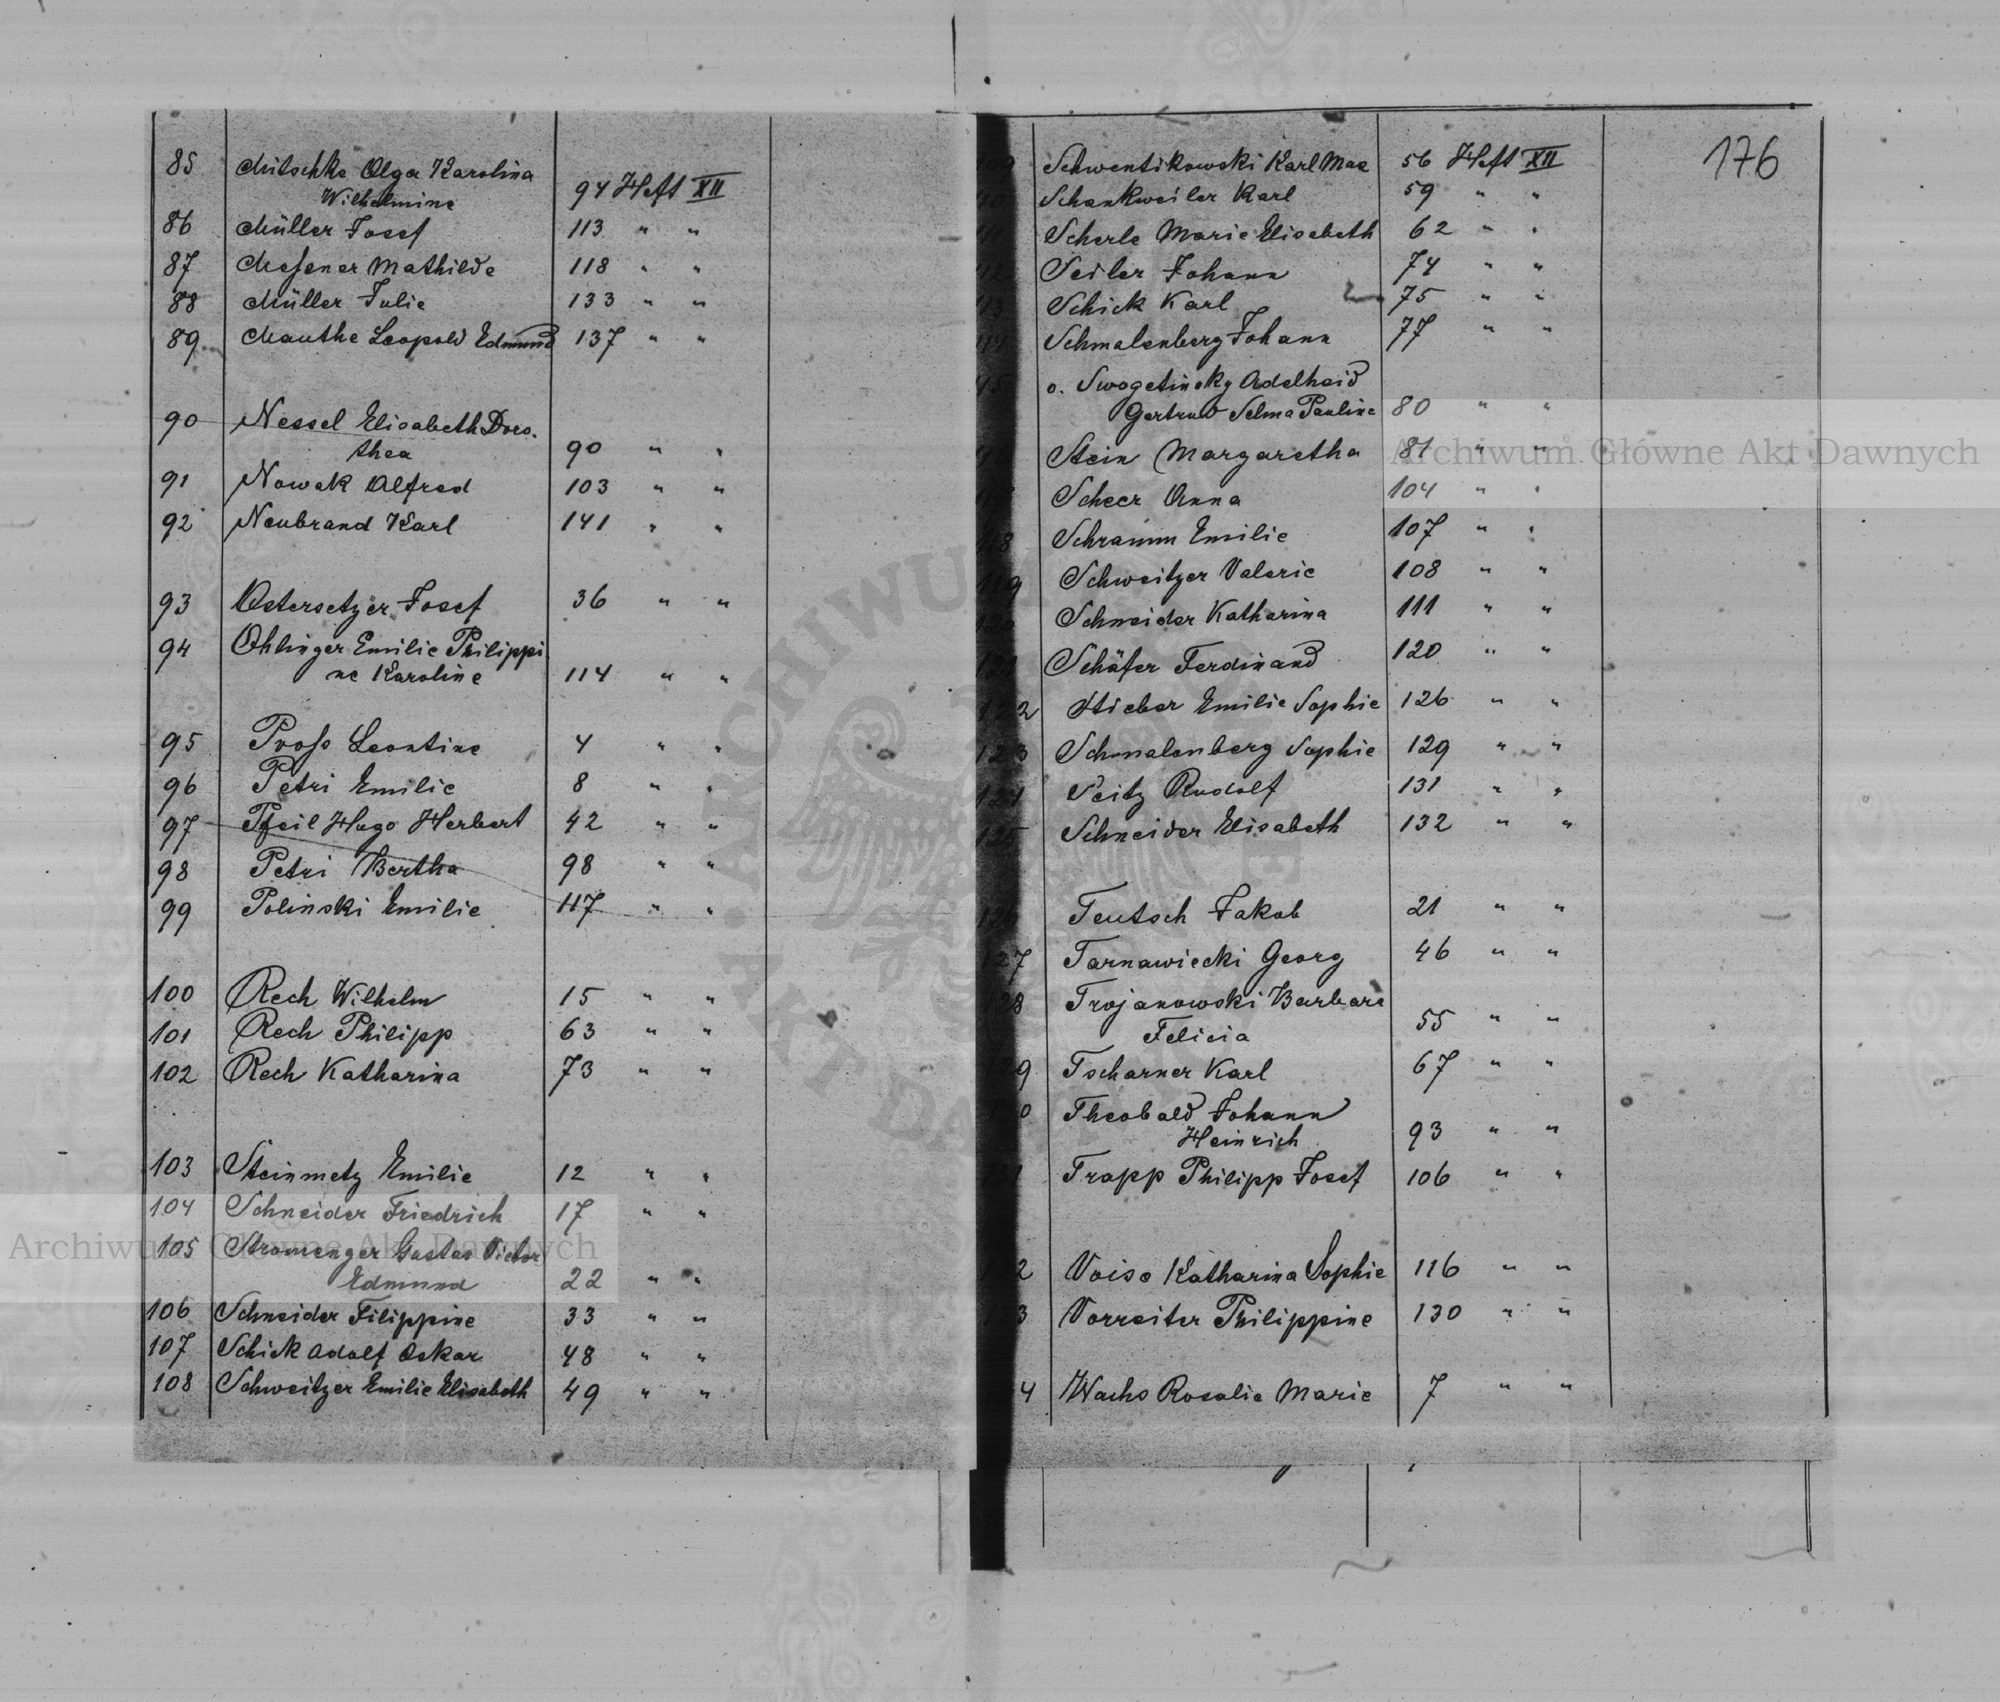 85 Mitschke Olga Karolina
Wilhelmine 94 Heft XII
86 Müller Josef 113 " "
87 Meßner Mathilde 118 " "
88 Müller Julie 133 " "
89 Mauthe Leopold Edmund 137 " "
90 Nessel Elisabeth Doro-
thea 90 " "
91 Nowak Alfred 103 " "
92 Neubrand Karl 141 " "
93 Ostersetzer Josef 36 " "
94 Ohlinger Emilie Philippi
ne Karoline 114 " "
95 Proß Leontine 4 " "
96 Petri Emilie 8 " "
97 Pfeil Hugo Herbert 42 " "
98 Petri Bertha 98 " "
99 Polinski Emilie 117 " "
100 Rech Wilhelm 15 " "
101 Rech Philipp 63 " "
102 Rech Katharina 73 " "
103 Steinmetz Emilie 12 " "
104 Schneider Friedrich 17 " "
105 Stromenger Gustav Victor
Edmund 22 " "
106 Schneider Filippine 33 " "
107 Schick Adolf Oskar 48 " "
108 Schweitzer Emilie Elisabeth 49 " "
176
Schwentikowski Karl Max 56 Heft XII
Schankweiler Karl 59 " "
Scherle Marie Elisabeth 62 " "
Seiler Johann 74 " "
Schick Karl 75 " "
Schmalenberg Johann 77 " "
v. Swogetinsky Adelheid
Gertrud Selma Pauline 80 " "
Stein Margaretha 81 " "
Scheer Anna 104 " "
Schramm Emilie 107 " "
Schweitzer Valerie 108 " "
Schneider Katharina 111 " "
Schäfer Ferdinand 120 " "
Stieber Emilie Sophie 126 " "
123 Schmalenberg Sophie 129 " "
Seitz Rudolf 131 " "
125 Schneider Elisabeth 132 " "
Teutsch Jakob 21 " "
127 Tarnawiecki Georg 46 " "
128 Trojanowski Barbara
Felicia 55 " "
9 Tscharner Karl 67 " "
0 Theobald Johann
Heinrich 93 " "
Trapp Philipp Josef 106 " "
2 Voise Katharina Sophie 116 " "
3 Vorreiter Philippine 130 " "
4 Wachs Rosalie Marie 7 " "
Archiwum Główne Akt Dawnych
Archiwum Główne Akt Dawnych